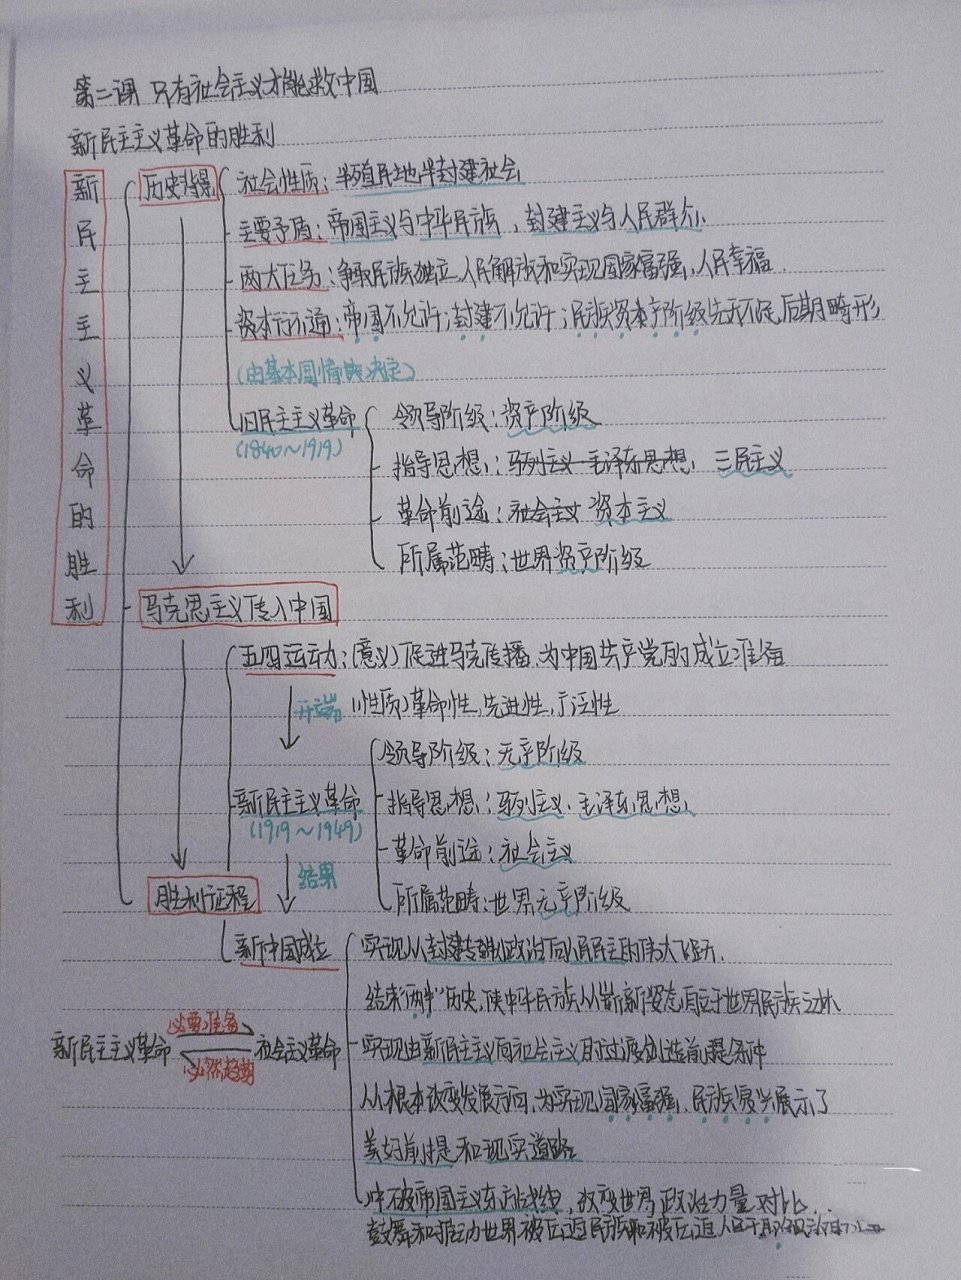 第二课 只有社会主义才能救中国
新民主主义革命的胜利
新民主主义革命的胜利
历史背景
社会性质：半殖民地半封建社会
主要矛盾：帝国主义与中华民族，封建主义与人民群众
两大任务：争取民族独立、人民解放和实现国家富强，人民幸福
资本行不通：帝国不允许；封建不允许；民族资本产阶级先天不足，后期畸形
（由基本国情决定）
旧民主主义革命
(1840～1919)
领导阶级：资产阶级
指导思想：马列主义 毛泽东思想，三民主义
革命前途：社会主义 资本主义
所属范畴：世界资产阶级
马克思主义传入中国
五四运动：(意义)促进马克传播，为中国共产党的成立准备
开端
(性质)革命性，先进性，广泛性
新民主主义革命
(1919～1949)
领导阶级：无产阶级
指导思想：马列主义、毛泽东思想，
革命前途：社会主义
所属范畴：世界无产阶级
结果
胜利征程
新中国成立
实现从封建专制政治向人民民主的伟大飞跃
结束"两半"历史，使中华民族从崭新姿态自立于世界民族之林
实现由新民主主义向社会主义的过渡创造前提条件
从根本改变发展方向，为实现国家富强、民族复兴展示了
美好前提和现实道路
冲破帝国主义东方战线，改变世界政治力量对比，
鼓舞和推动世界被压迫民族和被压迫人
新民主主义革命
必要准备
必然趋势
社会主义革命